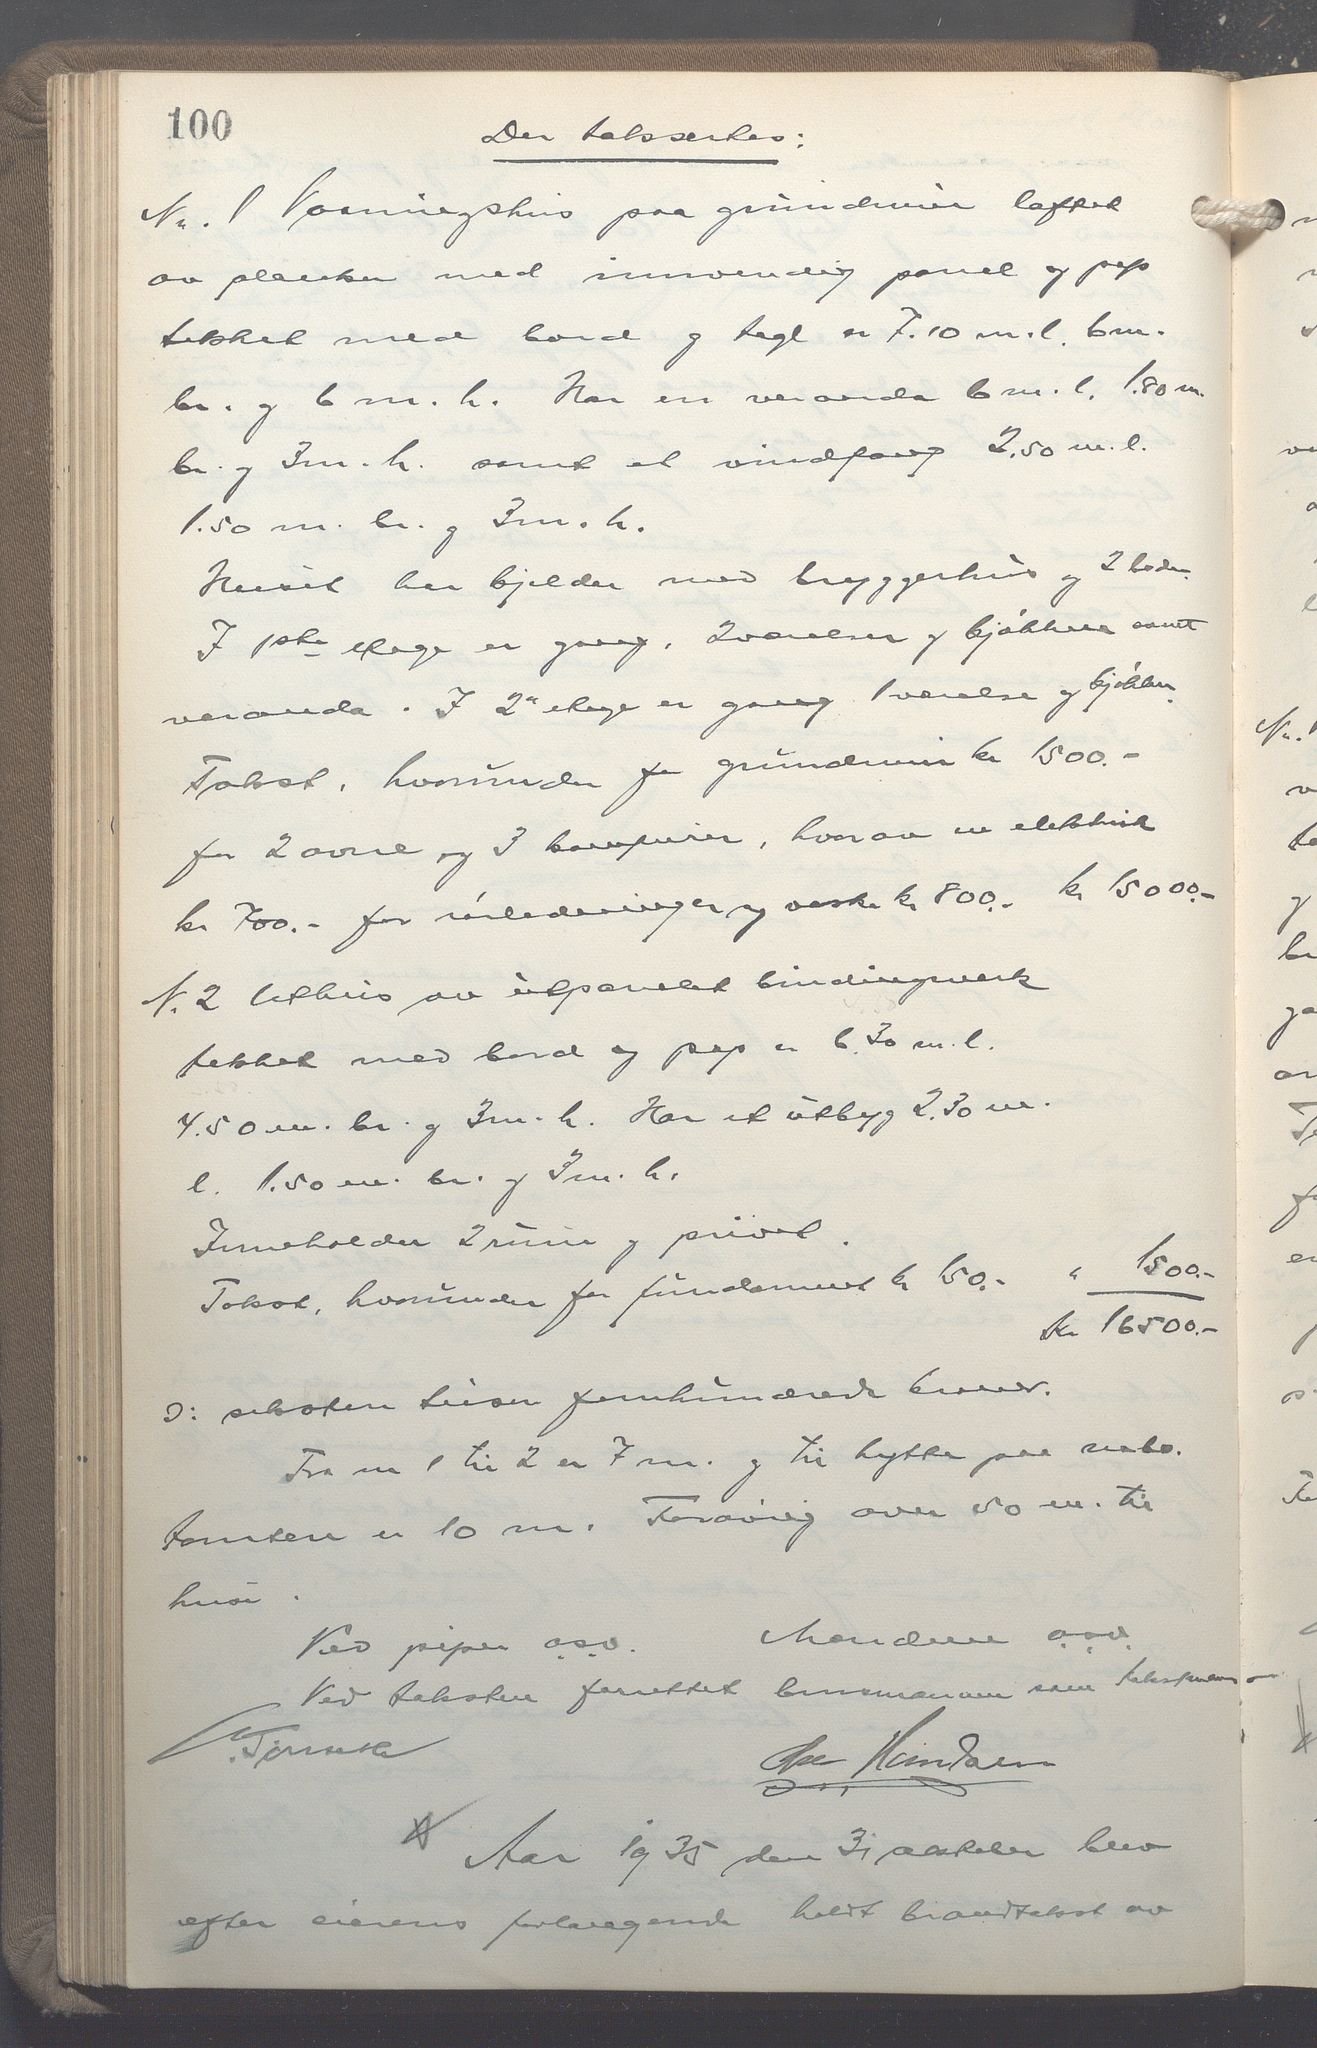 100
Der taksertes:
Nr. 1 Vaaningshus paa grundmur laftet
av planker med innvendig panel og pap
tekket med bord og tagl er 7.10 m. l. 6 m.
br. og 6 m. h. Har en veranda 6 m. l. 1.80 m.
br. og 3 m. h. samt et vindfang 2.50 m. l.
1.50 m. br. og 3 m. h.
Huset har kjelder med bryggerhus og 2 boder.
I 1ste etage er gang, 2 værelser og kjøkken samt
veranda. I 2" etage er gang 1 værelse og kjøkken.
Takst, hvorunder for grundmur kr 1500.-
for 2 ovne og 3 komfurer, hvorav en elektrisk
kr 700.- for rørledninger og vaske kr 800.- kr 15000.-
N. 2 Uthus av utpanelet bindingverk
tekket med bord og pap er 6.30 m. l.
4.50 m. br. og 3 m. h. Har et utbyg 2.30 m.
l. 1.50 m. br. og 3 m. h.
Inneholder 2 rum og privet.
Takst, hvorunder for fundament kr 150.- " 1500.-
kr 16500.-
ɔ: seksten tusen femhundrede kroner.
Fra nr 1 til 2 er 7 m. og til hytte paa nabo.
tomten er 10 m. Forøvrig over 50 m. til
hus.
Ved piper o.s.v. Mændene o.s.v.
Ved taksten forrettet lensmannen som takstmann
Aar 1935 den 31 oktober blev
efter eierens forlangende holdt brandtakst av